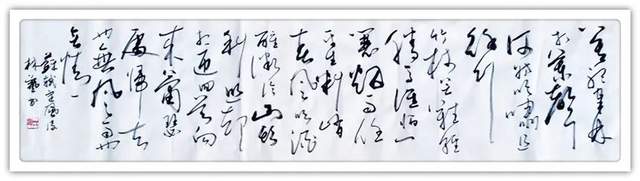 莫听穿林
打葉聲
何妨吟嘯且
徐行
竹杖芒鞋輕
勝马谁怕一
蓑烟雨任
平生料峭
春风吹酒
醒微冷山头
斜照却
相迎回首向
来蕭瑟
處归去
也無风雨也
无晴
蘇軾定風波
林 书